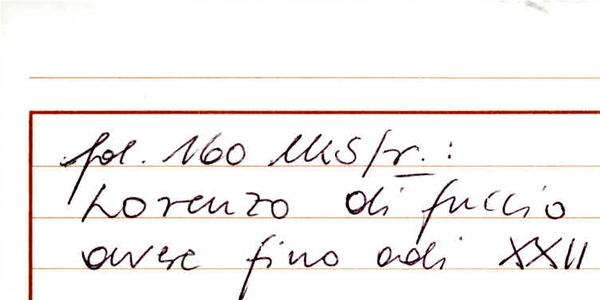 fol. 160 MKS/r. :
Lorenzo di fuccio
avere fino adi XXII